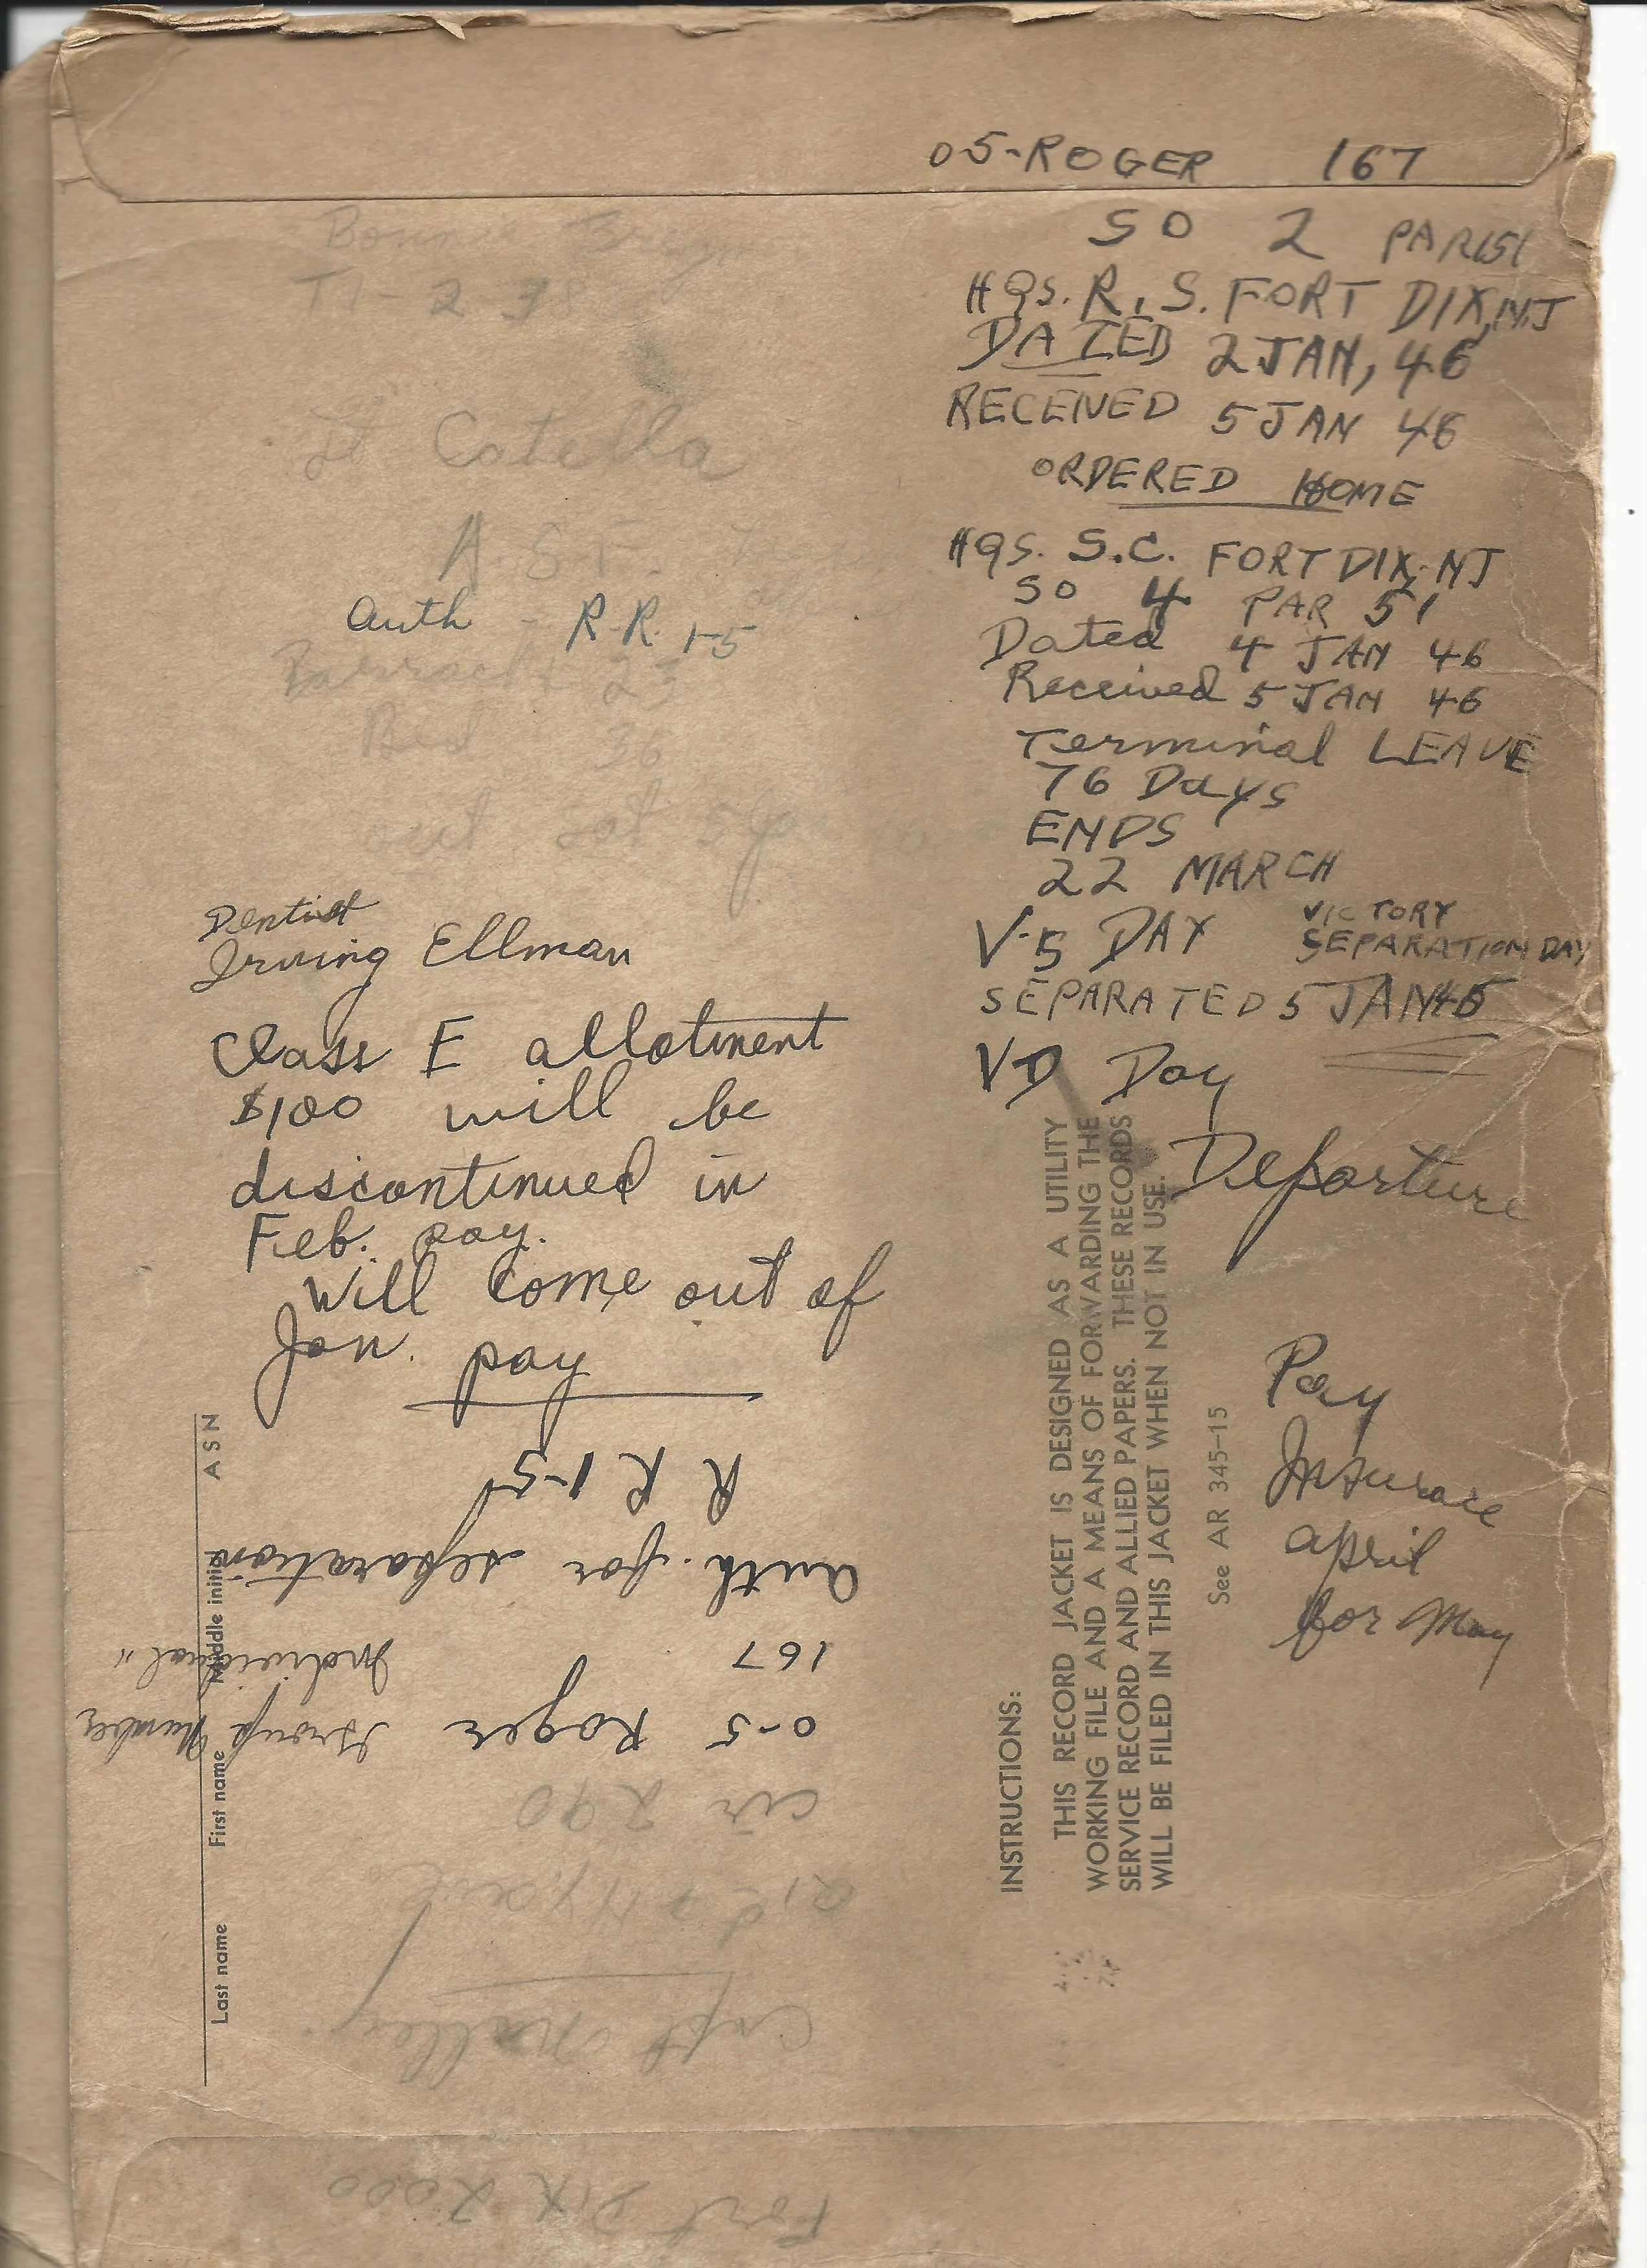 05-ROGER 167
SO 2 PAR 151
HQS. R.S. FORT DIX, NJ
DATED 2 JAN, 46
RECEIVED 5 JAN 46
ORDERED HOME
HQS. S.C. FORT DIX, NJ
SO 4 PAR 51
Dated 4 JAN 46
Received 5 JAN 46
Terminal LEAVE
76 Days
ENDS
22 MARCH
V-S DAY VICTORY
SEPARATION DAY
SEPARATED 5 JAN 46
VD Day
Departure
Pay
Insurace
april
for May
Lt Catella
A S F
Auth - R.R. 1-5
Barrack 25
Bed 36
Dentist
Irving Ellman
Class E allotment
$100 will be
discontinued in
Feb. pay.
Will come out of
Jan. pay
R R 1-5
Auth. for separation
167 Individual "
0-5 Roger Group Number
cir 290
Capt
Fort Dix 2000
Last name First name Middle initial ASN
INSTRUCTIONS:
THIS RECORD JACKET IS DESIGNED AS A UTILITY
WORKING FILE AND A MEANS OF FORWARDING THE
SERVICE RECORD AND ALLIED PAPERS. THESE RECORDS
WILL BE FILED IN THIS JACKET WHEN NOT IN USE.
See AR 345-15